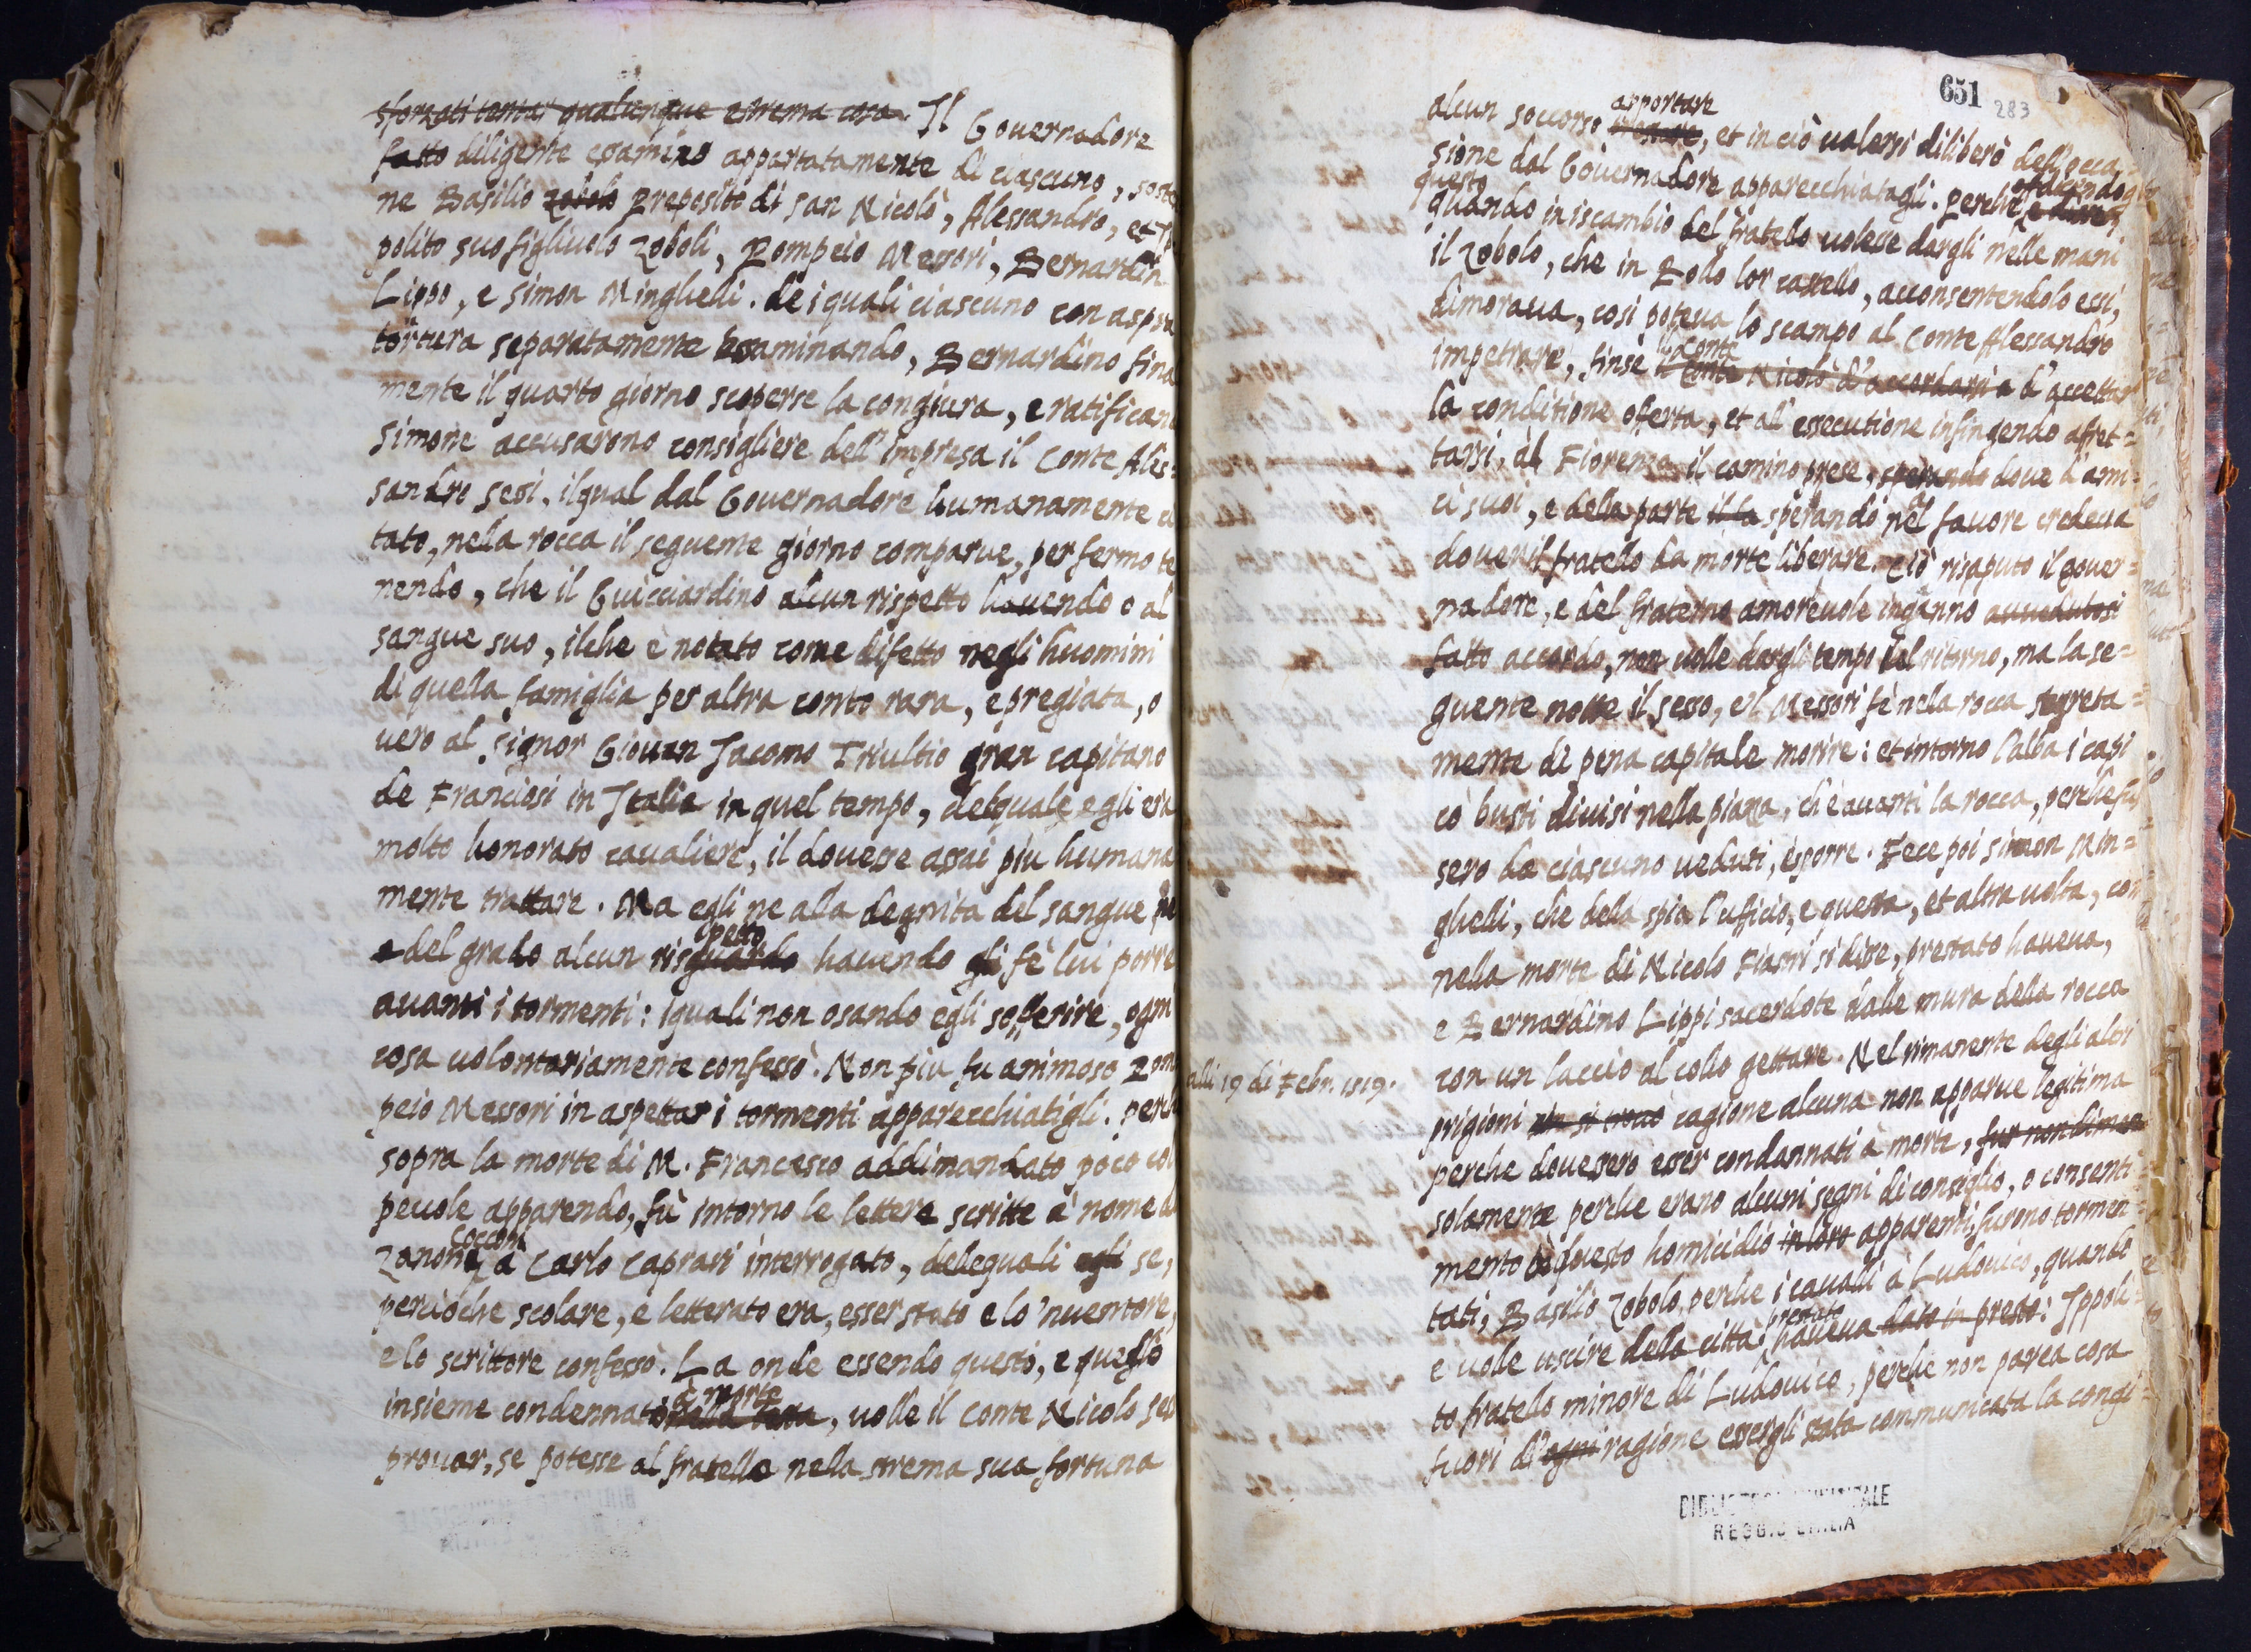 sforzati tentar qualunque estrema cosa. Il Governadore
fatto diligente esamino appartatamente di ciascuno, soste
ne Basilio Zobolo Preposito di san Nicolò, Alessandro, et Ip
polito suo figliuolo Zoboli, Pompeio Messori, Bernardin
Lippo, e Simon Minghelli. de i quali ciascuno con aspra
tortura separatamente essaminando, Bernardino final
mente il quarto giorno scoperse la congiura, e ratifican
Simone accusarono consigliere dell'impresa il Conte Ales=
sandro sessi. ilqual dal Governadore humanamente ci
tato, nella rocca il seguente giorno comparue, per fermo te
nendo, che il Guicciardino alcun rispetto hauendo o al
sangue suo, ilche è notato come difetto negli huomini
di quella famiglia per altra conto rara, e pregiata, o
uero al signor Giouan Jacomo Triultio gran capitano
de Franciosi in Italia in quel tempo, delquale egli era
molto honorato caualiere, il douesse assai piu humana
mente trattare. Ma egli ne alla degnita del sangue ne
e del grado alcun risguardo petto hauendo gli fè lui porre
auanti i tormenti: iquali non osando egli sofferire, ogni
cosa uolontariamente confessò. Non piu fu animoso Pom
peio Messori in aspettar i tormenti apparecchiatigli. perch
sopra la morte di M. Francesco addimandato poco col
peuole apparendo, fù intorno le lettere scritte à nome di
Zanone Cocconi à Carlo Caprari interrogato, dellequali egli se,
percioche scolare, e letterato era, esser stato e lo 'nuentore,
e lo scrittore confessò. La onde essendo questo, e quegli
insieme condennato nella testa à morte, uolle il Conte Nicolo ses
prouar, se potesse al fratello nella strema sua fortuna
651
283
alcun soccorso apportare, et in ciò ualersi diliberò dell'occa=
sione dal Governadore apparecchiatagli. perche offerendogli
questo quando in iscambio del fratello uolesse dargli nelle mani
il Zobolo, che in Rollo lor castello, acconsentendolo essi,
dimoraua, cosi poteua lo scampo al Conte Alessandro
impetrare, finse il conte Conte Nicolò d'accordarsi e d'accettar
la conditione oferta, et al essecutione infingendo affret=
tarsi, al Fiorenza il camino prese, sperando doue d'ami=
ci suoi, e della parte il la sperando nel fauore credeua
douer il fratello da morte liberare. Ciò risaputo il gouer=
nadore, e del fraterno amoreuole inganno auuedutosi
fatto accordo, non uolle dargli tempo del ritorno, ma la se=
guente notte il sesso, e'l Messori fè nella rocca segreta=
mente di pena capitale morire: et intorno l'alba i capi
co busti diuisi nella piazza, ch'è auanti la rocca, perche fus
sero da ciascuno ueduti, esporre. Fece poi simon Min=
ghelli, che dela spia l'ufficio, e questa, et altra uolta, con
nella morte di Nicolo Fiastri si disse, prestato haueua,
e Bernardino Lippi sacerdote dalle mura della rocca
con un laccio al collo gettare. Nel rimanente degli altri
alli 19 di Febr. 1519.
prigioni non si trouò cagione alcuna non apparue legitima
perche douessero esser condannati à morte, fur nondimen
solamente perche erano alcuni segni di consiglio, o consenti=
mento di questo homicidio in loro apparenti, furono tormen=
tati, Basilio Zobolo, perche i caualli à Ludouico, quando
e uolle uscire della citta, prestato haueua dato in presto: Ippoli=
to fratello minore di Ludouico, perche non parea cosa
fuori di ogni ragione essergli stata communicata la congi=
BIBLIOTECA MUNICIPALE
REGGIO EMILIA